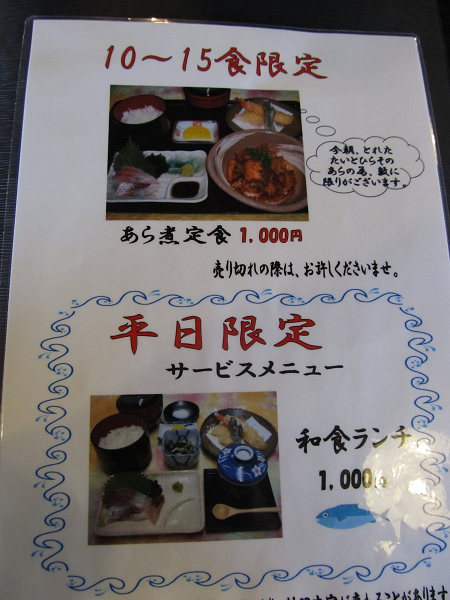 10～15食限定
今朝、とれた
たいとひらその
あらの為、数に
限りがございます。
あら煮定食 1,000円
売り切れの際は、お許しくださいませ。
平日限定
サービスメニュー
和食ランチ
1,000円